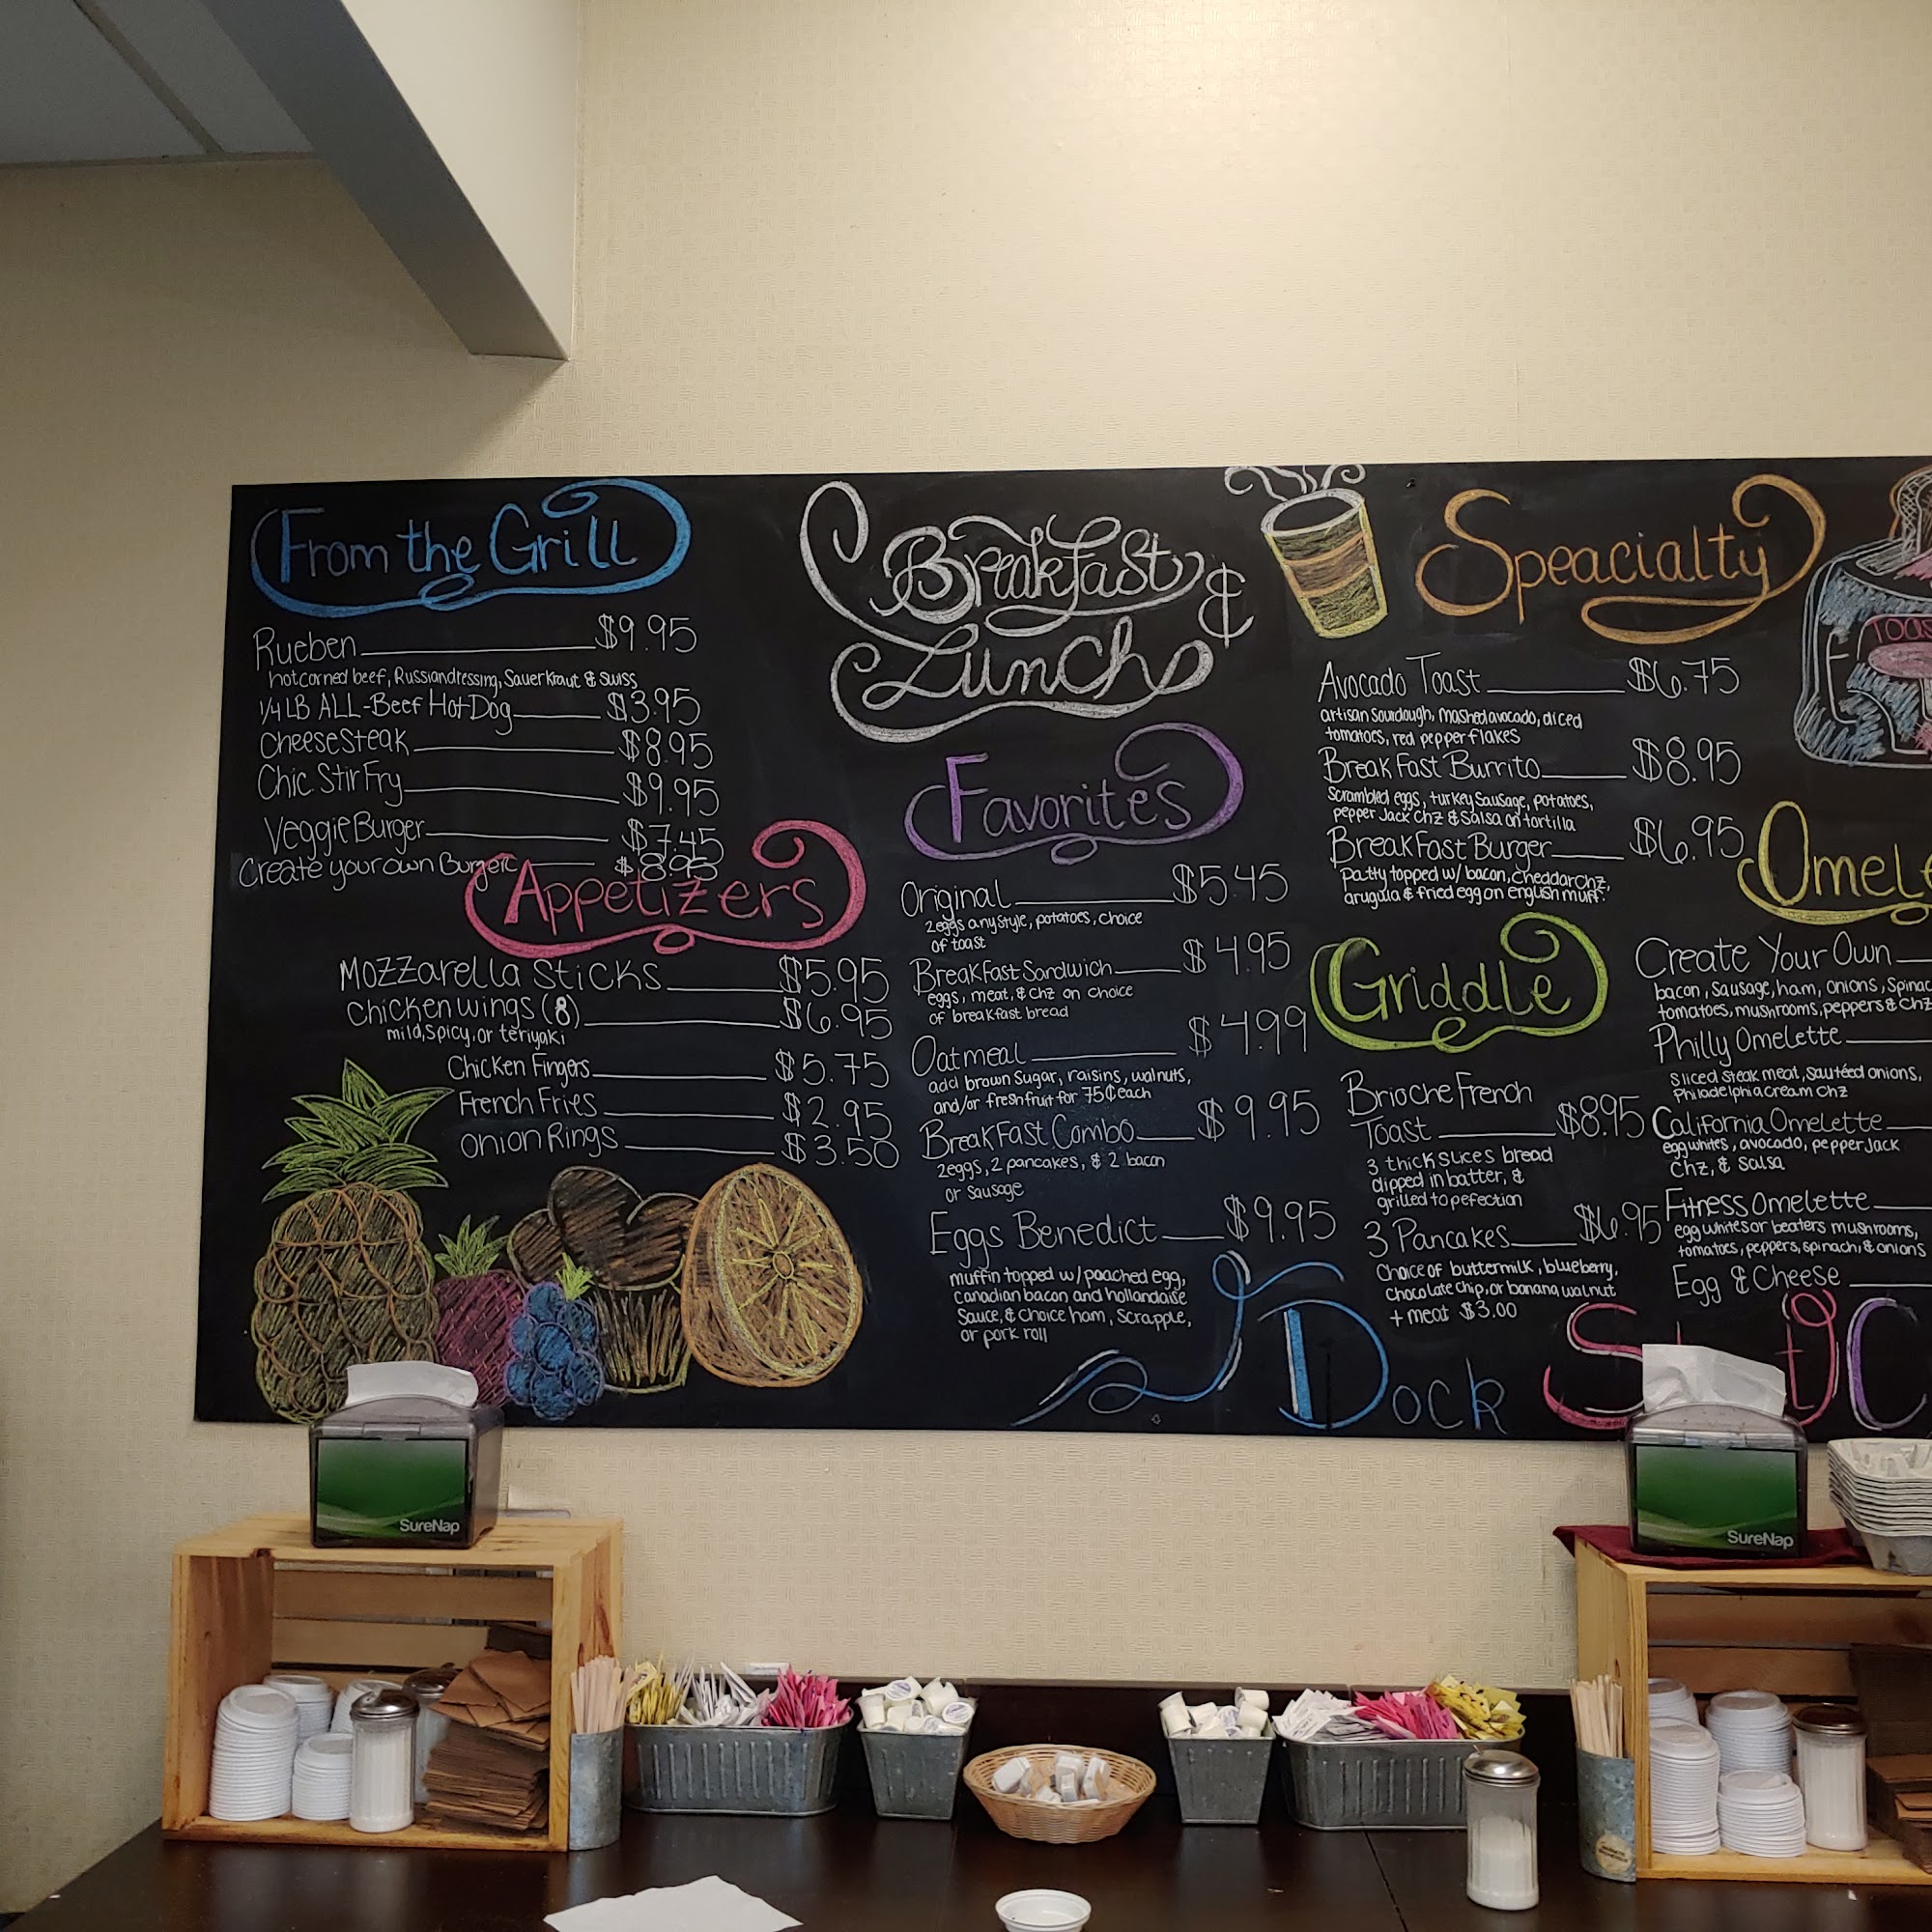 From the Grill
Rueben $9.95
hot corned beef, Russian dressing, Sauer Kraut & swiss
1/4 LB ALL-Beef Hot Dog $3.95
Cheesesteak $8.95
Chic. Stir Fry $9.95
Veggie Burger $7.45
Create your own Burger $8.95
Appetizers
Mozzarella Sticks $5.95
Chicken wings (8) $6.95
mild, spicy, or teriyaki
Chicken Fingers $5.75
French Fries $2.95
Onion Rings $3.50
Breakfast &
Lunch
Favorites
Original $5.45
2 eggs any style, potatoes, choice
of toast
Breakfast Sandwich $4.95
eggs, meat, & chz on choice
of breakfast bread
Oatmeal $4.99
add brown sugar, raisins, walnuts,
and/or fresh fruit for 75¢ each
Breakfast Combo $9.95
2 eggs, 2 pancakes, & 2 bacon
or sausage
Eggs Benedict $9.95
muffin topped w/ poached egg,
canadian bacon and hollandaise
Sauce, & choice ham, scrapple,
or pork roll
Speacialty
Avocado Toast $6.75
artisan sourdough, mashed avocado, diced
tomatoes, red pepper flakes
Breakfast Burrito $8.95
Scrambled eggs, turkey sausage, potatoes,
pepper Jack chz & salsa on tortilla
Breakfast Burger $6.95
patty topped w/ bacon, cheddar chz,
arugula & fried egg on english muff.
Griddle
Brioche French
Toast $8.95
3 thick slices bread
dipped in batter, &
grilled to pefection
3 Pancakes $6.95
Choice of buttermilk, blueberry,
chocolate chip, or banana walnut
+ meat $3.00
Create Your Own
bacon, sausage, ham, onions, Spinac
tomatoes, mushrooms, peppers & chz
Philly Omelette
sliced steak meat, sautéed onions,
Philadelphia cream chz
California Omelette
egg whites, avocado, pepper jack
chz, & salsa
Fitness Omelette
egg whites or beaters mushrooms,
tomatoes, peppers, spinach, & onions
Egg & Cheese
Dock
SureNap
SureNap